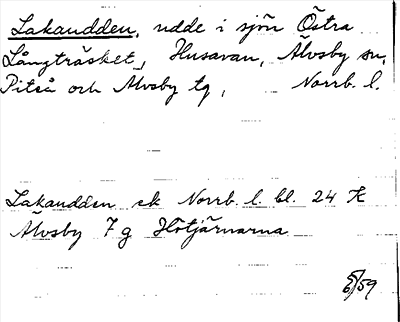 Lakaudden, udde i sjön Östra
Långträsket, Husavan, Älvsby sn,
Piteå och Älvsby tg, Norrb. l.
Lakaudden ek Norrb. l. bl. 24 K
Älvsby 7 g Hötjärnarna
59